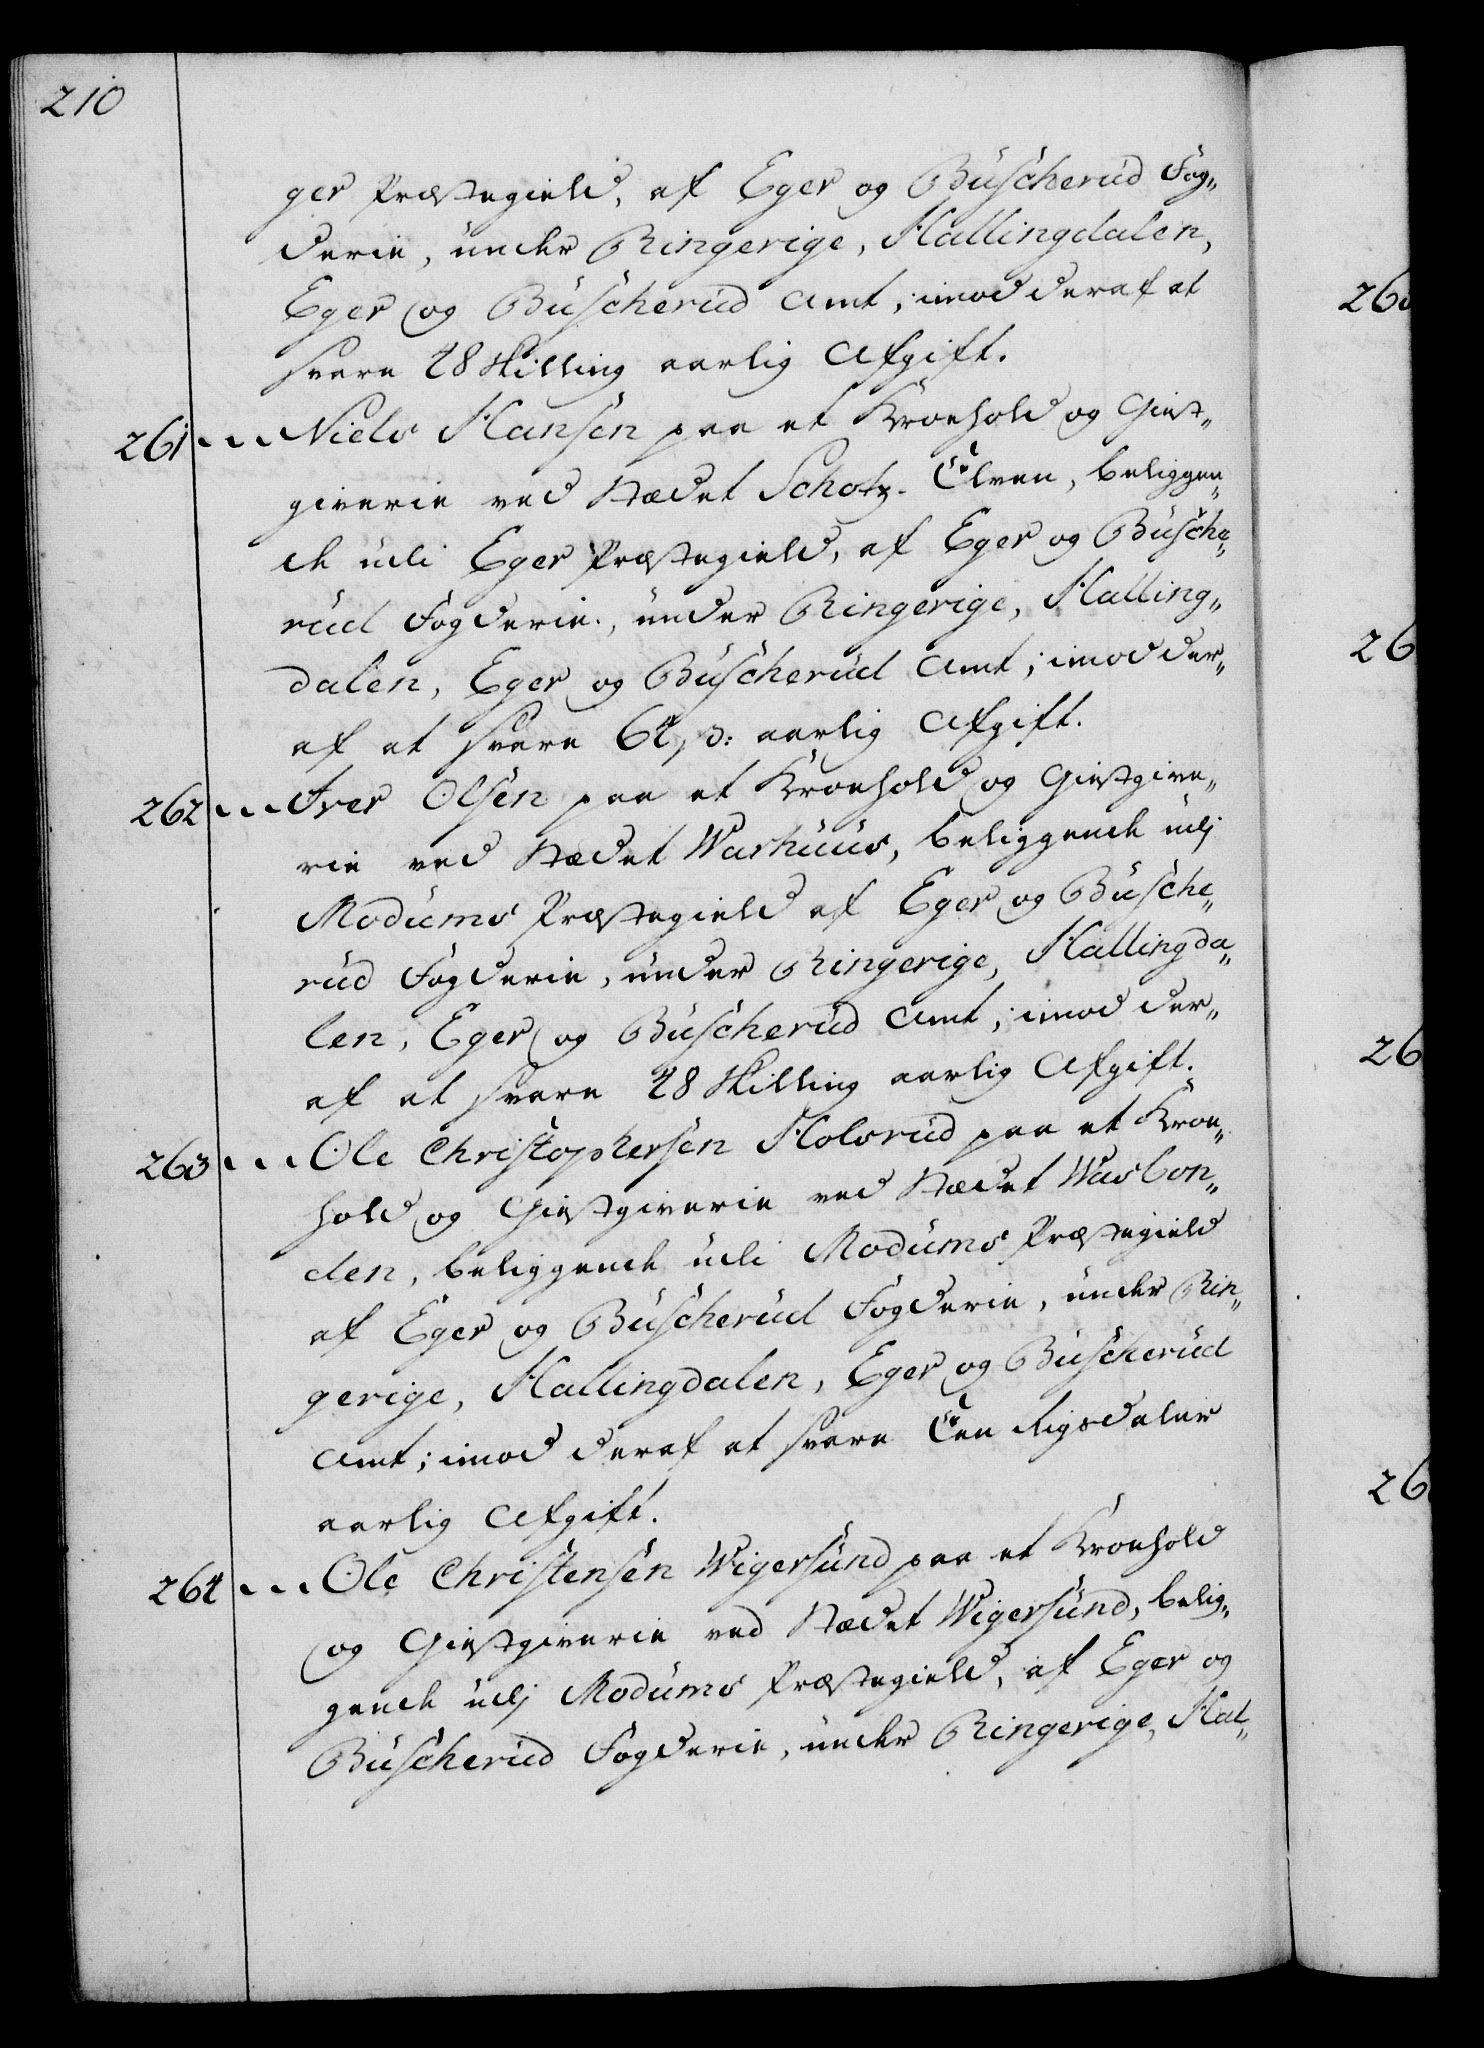 210
ger Præstegield, af Eger og Buscherud Fog„
derie, under Ringerige, Hallingdalen,
Eger og Buscherud Amt, imod deraf at
svare 48 Skilling aarlig Afgift.
261 Niels Hansen paa et Kroehold og Giest„
giverie ved Stædet Schotz-Elven, beliggen„
de udi Eger Præstegield, af Eger og Busche„
rud Fogderie, under Ringerige, Halling„
dalen, Eger og Buscherud Amt; imod der„
af at svare 64 ß: aarlig Afgift.
262 Iver Olsen paa et Kroehold og Giestgive„
rie ved Stædet Warhuus, beliggende udj
Modums Præstegield af Eger og Busche„
rud Fogderie, under Ringerige, Hallingda„
len, Eger og Buscherud Amt; imod der„
af at svare 48 Skilling aarlig Afgift.
263 Ole Christophersen Holsrud paa et Kroe„
hold og Giestgiverie ved Stædet Wasbon„
den, beliggende udi Modums Præstegield
af Eger og Buscherud Fogderie, under Rin„
gerige, Hallingdalen, Eger og Buscherud
Amt; imod deraf at svare Een Rigsdaler
aarlig Afgift.
264 Ole Christensen Wigersund paa et Kroehold
og Giestgiverie ved Stædet Wigersund, belig„
gende udj Modums Præstegield, af Eger og
Buscherud Fogderie, under Ringerige, Hal„
26
26
26
26